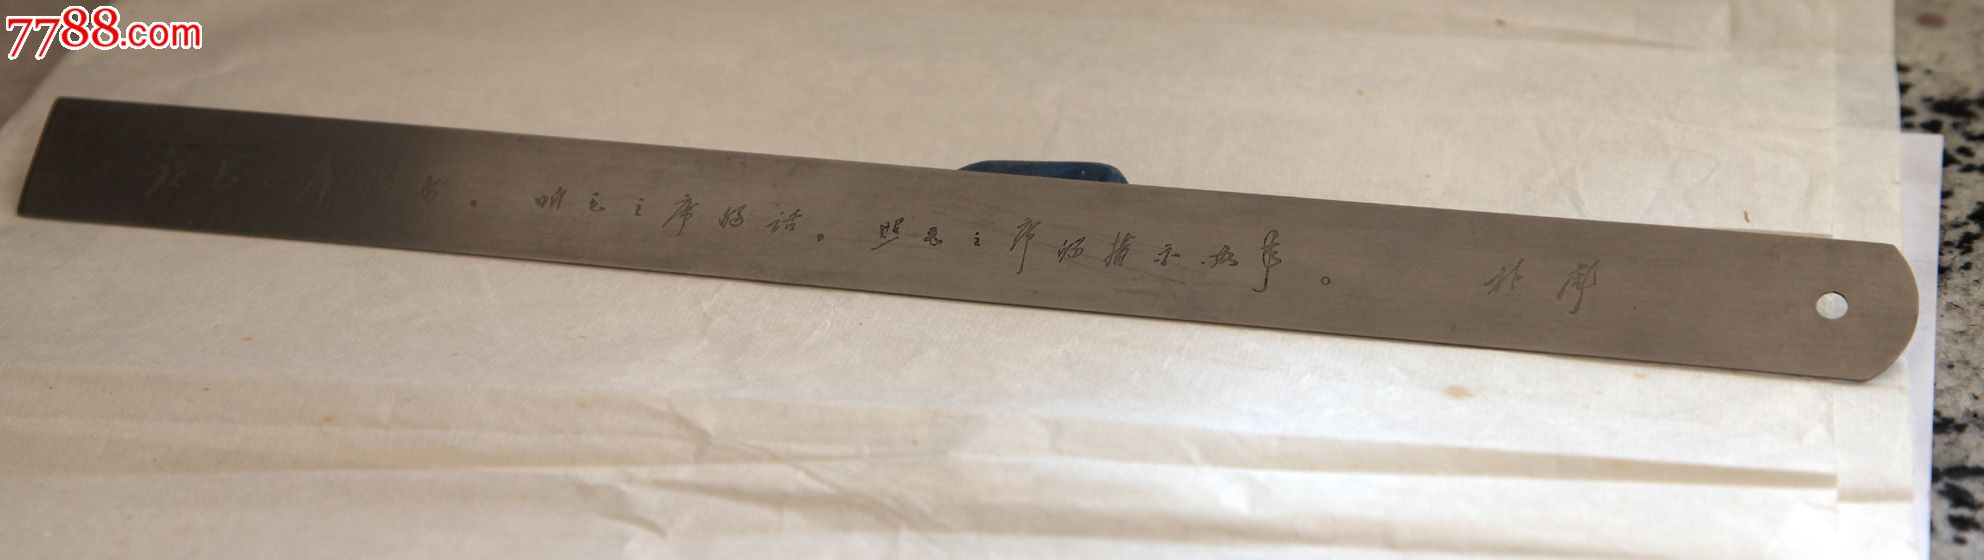 7788.com
读毛主席的书。听毛主席的话。照毛主席的指示办事。 林彪